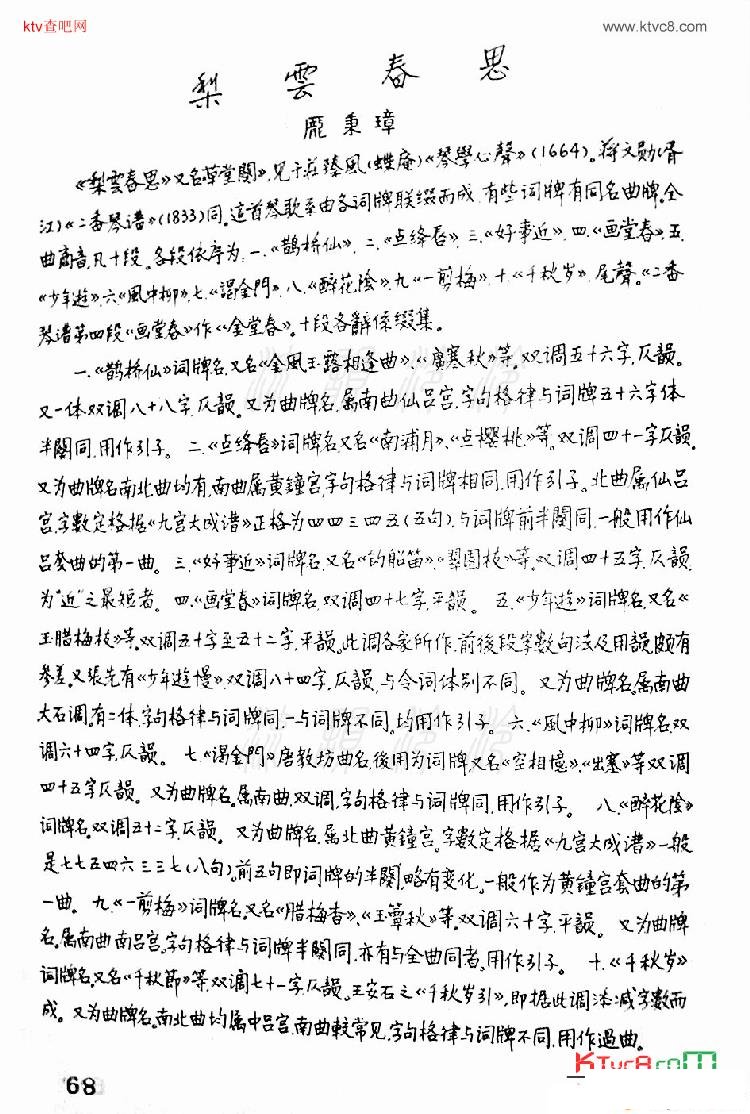 ktv查吧网
www.ktvc8.com
梨雲春思
龐秉璋
《梨雲春思》又名《草堂閣》,見于莊臻鳳(蝶庵)《琴學心聲》(1664)。蔣文勛(胥
江)《二香琴谱》(1833)同。這首琴歌系由各词牌联缀而成,有些词牌有同名曲牌。全
曲商音,凡十段。各段依序为:一.《鹊桥仙》,二.《点绛唇》,三.《好事近》,四.《画堂春》,五.
《少年遊》,六.《風中柳》,七.《謁金門》,八.《醉花陰》,九.《一剪梅》,十.《千秋岁》,尾聲。《二香
琴谱》第四段《画堂春》作《金堂春》。十段各辭係缀集。
一.《鹊桥仙》词牌名,又名《金風玉露相逢曲》、《廣寒秋》等。双调五十六字,仄韻。
又一体双调八十八字,仄韻。又为曲牌名,属南曲仙吕宫,字句格律与词牌五十六字体
半闋同,用作引子。 二.《点绛唇》词牌名,又名《南浦月》、《点樱桃》等。双调四十一字,仄韻。
又为曲牌名,南北曲均有,南曲属黄鐘宫,字句格律与词牌相同,用作引子。北曲属仙吕
宫,字數定格据《九宫大成谱》正格为四四三四五(五句),与词牌前半闋同,一般用作仙
吕套曲的第一曲。 三.《好事近》词牌名,又名《钓船笛》、《翠圆枝》等,双调四十五字,仄韻,
为"近"之最短者。 四.《画堂春》词牌名,双调四十七字,平韻。 五.《少年遊》词牌名,又名《
玉腊梅枝》等。双调五十字至五十二字,平韻。此调各家所作,前後段字數句法及用韻,颇有
参差。又張先有《少年遊慢》,双调八十四字,仄韻,与令词体别不同。 又为曲牌名,属南曲
大石调。有二体,字句格律与词牌同,一与词牌不同。均用作引子。 六.《風中柳》词牌名,双
调六十四字,仄韻。 七.《謁金門》唐教坊曲名,後用为词牌,又名《空相憶》、《出塞》等双调
四十五字仄韻。 又为曲牌名,属南曲,双调,字句格律与词牌同,用作引子。 八.《醉花陰》
词牌名,双调五十二字,仄韻。 又为曲牌名,属北曲黄鐘宫,字數定格据《九宫大成谱》一般
是七七五四六三三七(八句),前五句即词牌的半闋,略有变化,一般作为黄鐘宫套曲的第
一曲。 九.《一剪梅》词牌名,又名《腊梅香》、《玉簟秋》等,双调六十字,平韻。 又为曲牌
名,属南曲南吕宫,字句格律与词牌半闋同,亦有与全曲同者,用作引子。 十.《千秋岁》
词牌名,又名《千秋節》等,双调七十一字,仄韻。王安石之《千秋岁引》,即据此调添减字數而
成。又为曲牌名,南北曲均属中吕宫,南曲較常見,字句格律与词牌不同,用作過曲。
68